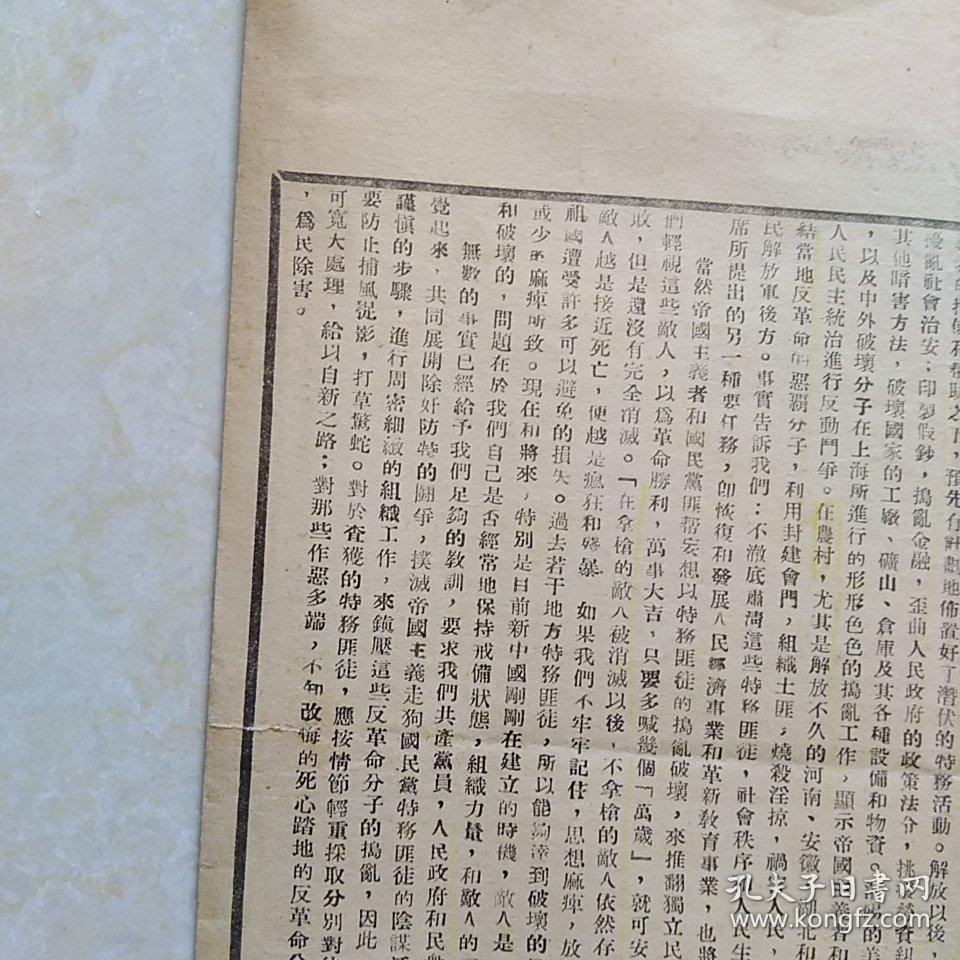 擾亂社會治安：印夢假鈔，搗亂金融，歪曲人民政府的政策法令，挑
其他暗害方法，破壞國家的工廠、礦山、倉庫及其各種設備和物資。
，以及中外破壞分子在上海所進行的形形色色的搗亂工作，顯示帝國主義者和
人民民主統治進行反動鬥爭。在農村，尤其是解放不久的河南、安徽、湖北和
結當地反革命的惡霸分子，利用封建會門，組織土匪，燒殺淫掠，禍
民解放軍後方。事實告訴我們：不澈底肅清這些特務匪徒，社會秩序
席所提出的另一種要任務，卽恢復和發展人民經濟事業和革新敎育事業，也將
當然帝國主義者和國民黨匪帮妄想以特務匪徒的搗亂破壞，來推翻獨立民
們輕視這些敵人，以爲革命勝利，萬事大吉，只要多喊幾個「萬歲」，就可安
敗，但是還沒有完全消滅。「在拿槍的敵人被消滅以後，不拿槍的敵人依然存
敵人越是接近死亡，便越是瘋狂和殘暴。如果我們不牢牢記住，思想麻痺，放
祖國遭受許多可以避免的損失。過去若干地方特務匪徒，所以能夠達到破壞的
或少的麻痺所致。現在和將來，特別是目前新中國剛剛在建立的時機，敵人是
和破壞的，問題在於我們自己是否經常地保持戒備狀態，組織力量，和敵人的
無數的事實已經給予我們足夠的敎訓，要求我們共產黨員，人民政府和民
覺起來，共同展開除奸防特的鬪爭，撲滅帝國主義走狗國民黨特務匪徒的陰謀
謹愼的步驟，進行周密細緻的組織工作，來鎭壓這些反革命分子的搗亂，因此
要防止捕風捉影，打草驚蛇。對於査獲的特務匪徒，應按情節輕重採取分別對
可寬大處理，給以自新之路；對那些作惡多端，不知改悔的死心踏地的反革命分
，爲民除害。
孔夫子旧書网
www.kongfz.com